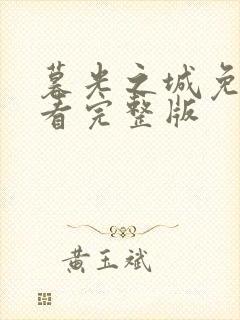 暮光之城免
看完整版
黄玉斌